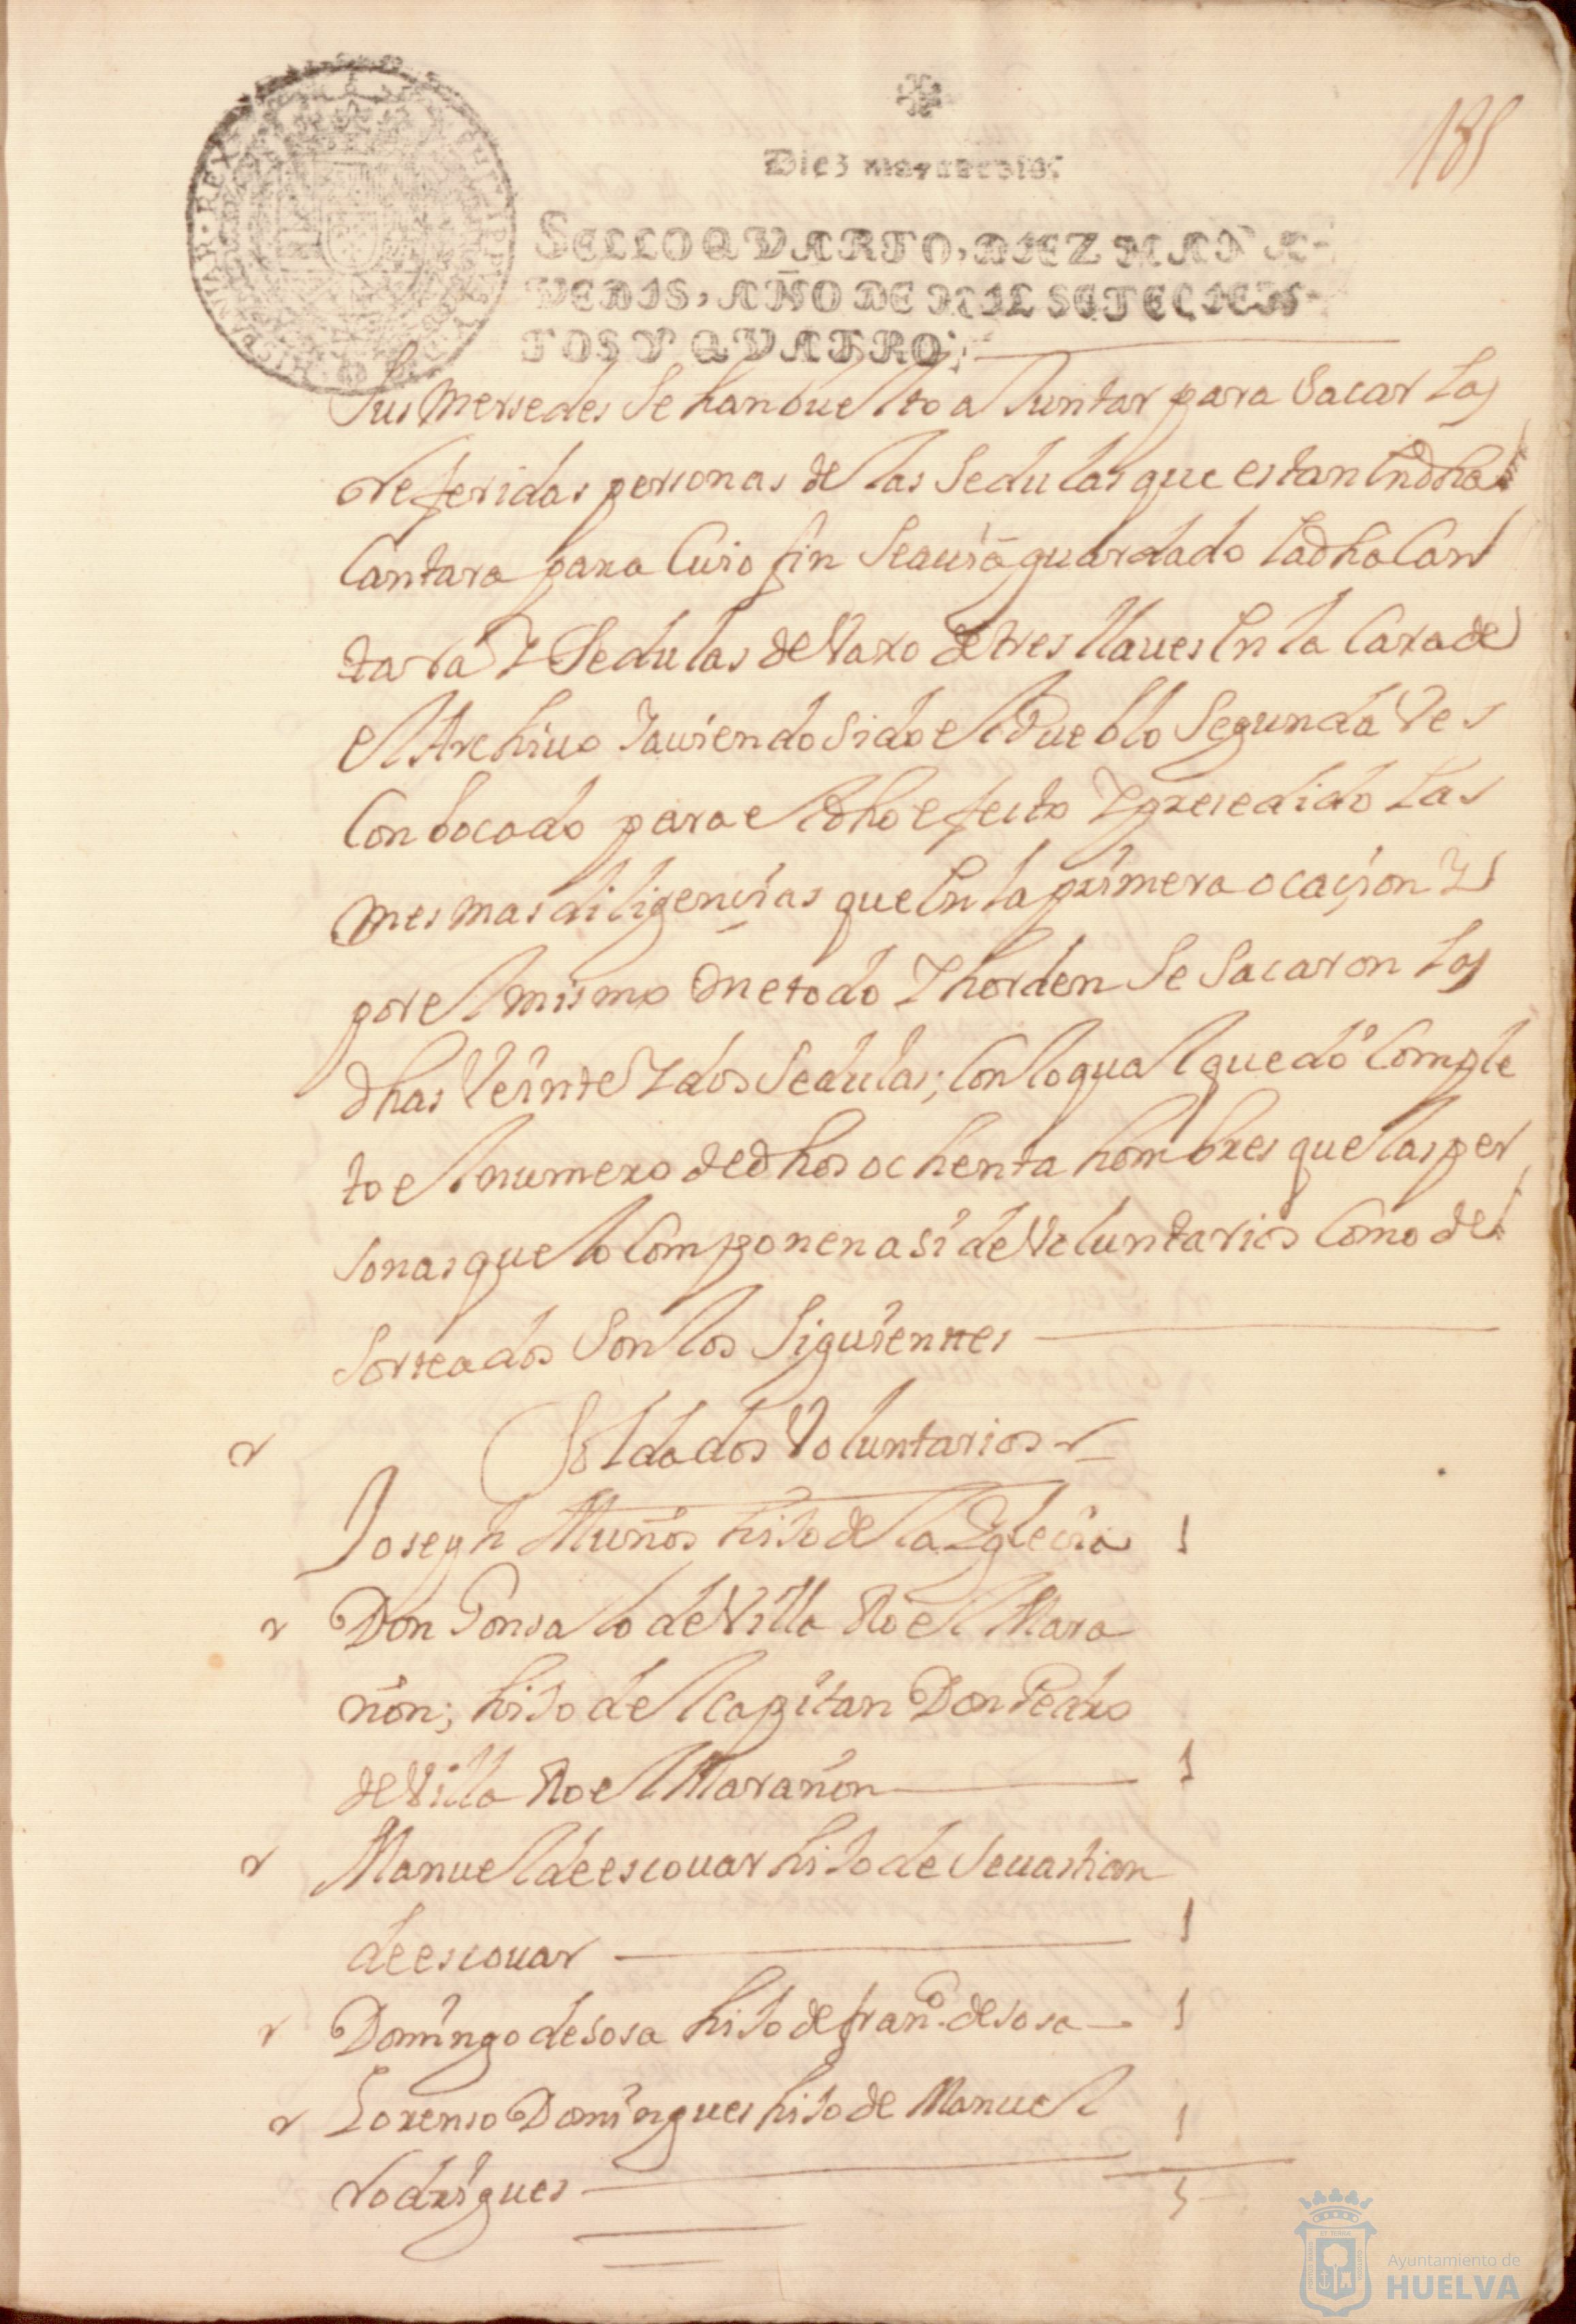 185
Diez maravedis.
SELLO QVARTO, DIEZ MARA-
VEDIS, AÑO DE MIL SETECIEN-
TOS Y QVATRO.
HISPANIAR·REX
PHILIPPUS·V·D·G
Sus Mersedes Se han buelto a Juntar para Sacar las
referidas personas de las Sedulas que estan En dha
Cantara para Cuio fin Seauia guardado la dha Can
tara Y Sedulas de Vaxo de tres llaues En la Caxa de
el Archiuo Jauiendo Sido el Pueblo Segunda Ves
Conbocado para el dho efecto Y presedido las
mesmas diligencias que En la primera ocaçion Y
por el mismo metodo Y horden Se Sacaron las
dhas Veinte Y dos Sedulas; Con lo qual quedó Comple
to el numero de dhos ochenta hombres que las per
sonas que lo Componen asi de Voluntarios Como de
Sorteados Son los Siguienttes
Soldados Voluntarios
r
Joseph Muños hijo de la Yglecia 1
r Don Gonsalo de Villa Roel Mara
ñon; hijo del Capitan Don Pedro
de Villa Roel Marañon 1
r Manuel de escouar hijo de Seuastian
de escouar 1
r Domingo de sosa hijo de fran.co de sosa 1
r Lorenso Domingues hijo de Manuel 1
rodrigues 5
Ayuntamiento de
HUELVA